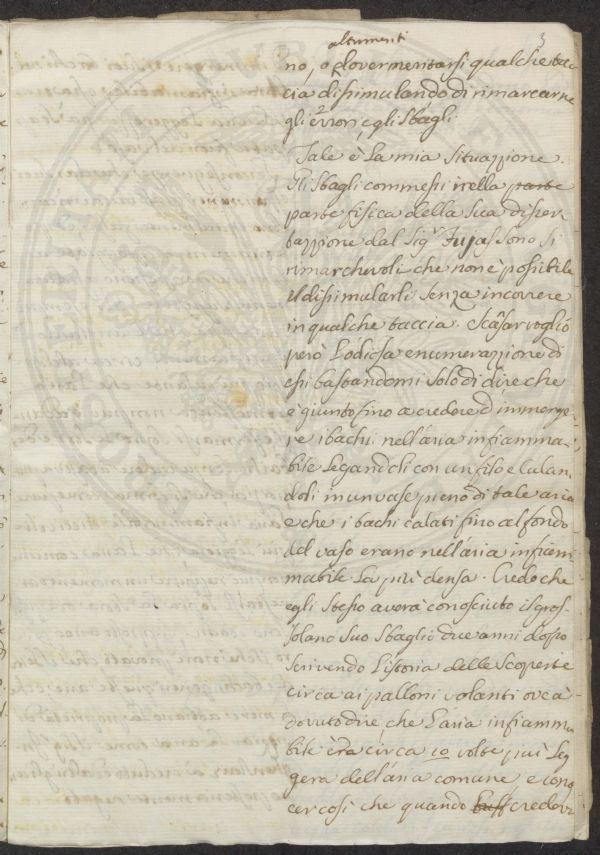 3
altrimenti
no, o dover meritarsi qualche tac-
cia dissimulando di rimarcarne
gli errori, e gli sbagli
Tale è la mia situazzione.
Gli Sbagli commessi nella parte
parte fisica della sua disser
tazzione dal Sigr Fujas sono si
rimarchevoli che non è possibile
il dissimularli senza incorrere
in qualche taccia. Scãsar voglio
però l'odiosa enumerazzione di
essi bastandomi solo di dire che
è giunto fino a credere d'immerge-
re i bachi nell'aria infiamma-
bile legandoli con un filo e calan-
doli in un vase pieno di tale aria
e che i bachi calati fino al fondo
del vaso erano nell'aria infiam
mabile la più densa. Credo che
egli stesso averà conosciuto il gros-
solano suo sbaglio due anni dopo
scrivendo l'istoria delle scoperte
circa ai palloni volanti ove à
dovuto dire, che l'aria infiamma
bile era circa 10 volte più leg
gera dell'aria comune e cono
cer così che quando buff credeva